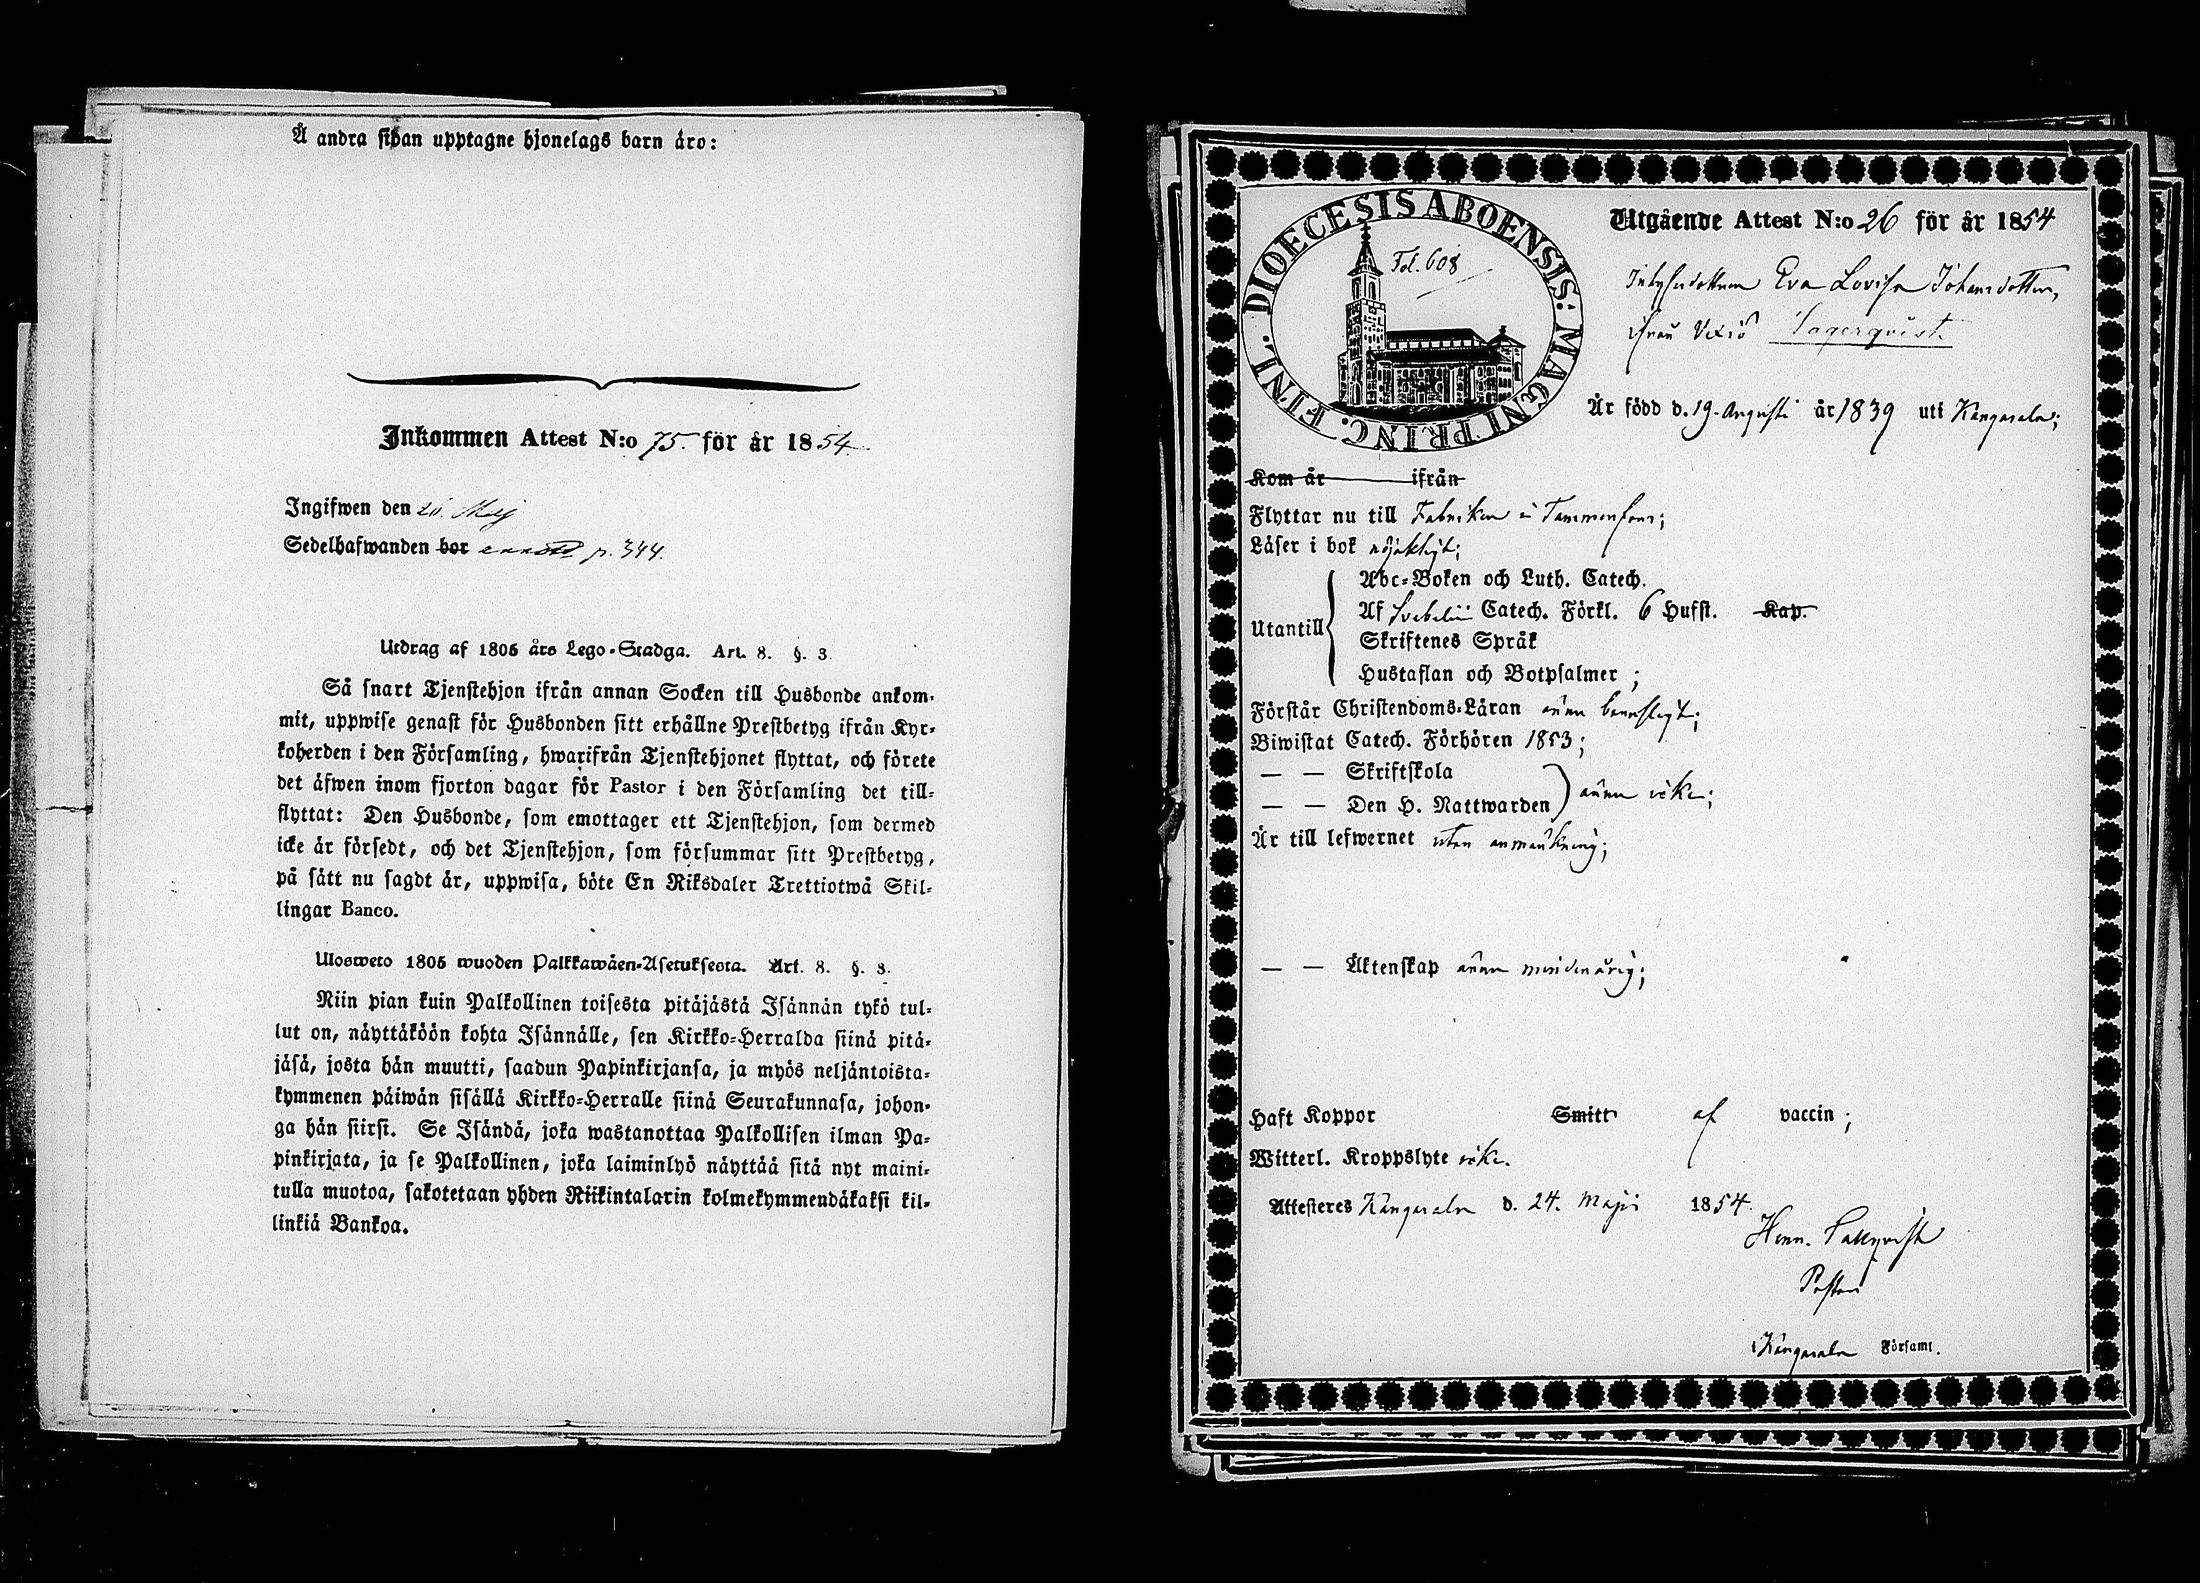 Å andra sidan upptagne hjonelags barn äro:
Inkommen Attest N:o 75. för år 1854.
Ingifwen den 26. Maj
Sedelhafwanden bor p. 344.
Utdrag af 1805 års Lego-Stadga. Art. 8. §. 3.
Så snart Tjenstehjon ifrån annan Socken till Husbonde ankom-
mit, uppwise genast för Husbonden sitt erhållne Prestbetyg ifrån Kyr-
koherden i den Församling, hwarifrån Tjenstehjonet flyttat, och förete
det äfwen inom fjorton dagar för Pastor i den Församling det till-
flyttat: Den Husbonde, som emottager ett Tjenstehjon, som dermed
icke är försedt, och det Tjenstehjon, som försummar sitt Prestbetyg,
på sätt nu sagdt är, uppwisa, böte En Riksdaler Trettiotwå Skil-
lingar Banco.
Ulosweto 1805 wuoden Palkkawäen-Asetuksesta. Art. 8. §. 3.
Niin pian kuin Palkollinen toisesta pitäjästä Isännän tykö tul-
lut on, näyttäköön kohta Isännälle, sen Kirkko-Herralda siinä pitä-
jäsä, josta hän muutti, saadun Papinkirjansa, ja myös neljäntoista-
kymmenen päiwän sisällä Kirkko-Herralle siinä Seurakunnasa, johon-
ga hän siirsi. Se Isändä, joka wastanottaa Palkollisen ilman Pa-
pinkirjata, ja se Palkollinen, joka laiminlyö näyttää sitä nyt maini-
tulla muotoa, sakotetaan yhden Riikintalarin kolmekymmendäkaksi kil-
linkiä Bankoa.
DIOECESIS ABOENSIS: MAGNI PRINC. FINL.
Fol. 608
Utgående Attest N:o 26 för år 1854
Inhysesdottren Eva Lovisa Johansdotter,
ifrån Vexiö Lagerqvist.
Är född d. 19. Augusti år 1839 uti Kangasala;
Kom år ifrån
Flyttar nu till Fabriken i Tammerfors;
Läser i bok nöjaktigt;
Utantill
Abc-Boken och Luth. Catech.
Af Svebelii Catech. Förkl. 6 Hufst. Kap.
Skriftenes Språk
Hustaflan och Botpsalmer;
Förstår Christendoms-Läran ännu
Biwistat Catech. Förhören 1853;
— — Skriftskola
— — Den H. Nattwarden ännu icke;
Är till lefwernet utan anmärkning;
— — Äktenskap ännu minderårig;
Haft Koppor Smitt af vaccin;
Witterl. Kroppslyte icke.
Attesteres Kangasala d. 24. Maji 1854.
Henr.
Pastor
i Kangasala Församl.